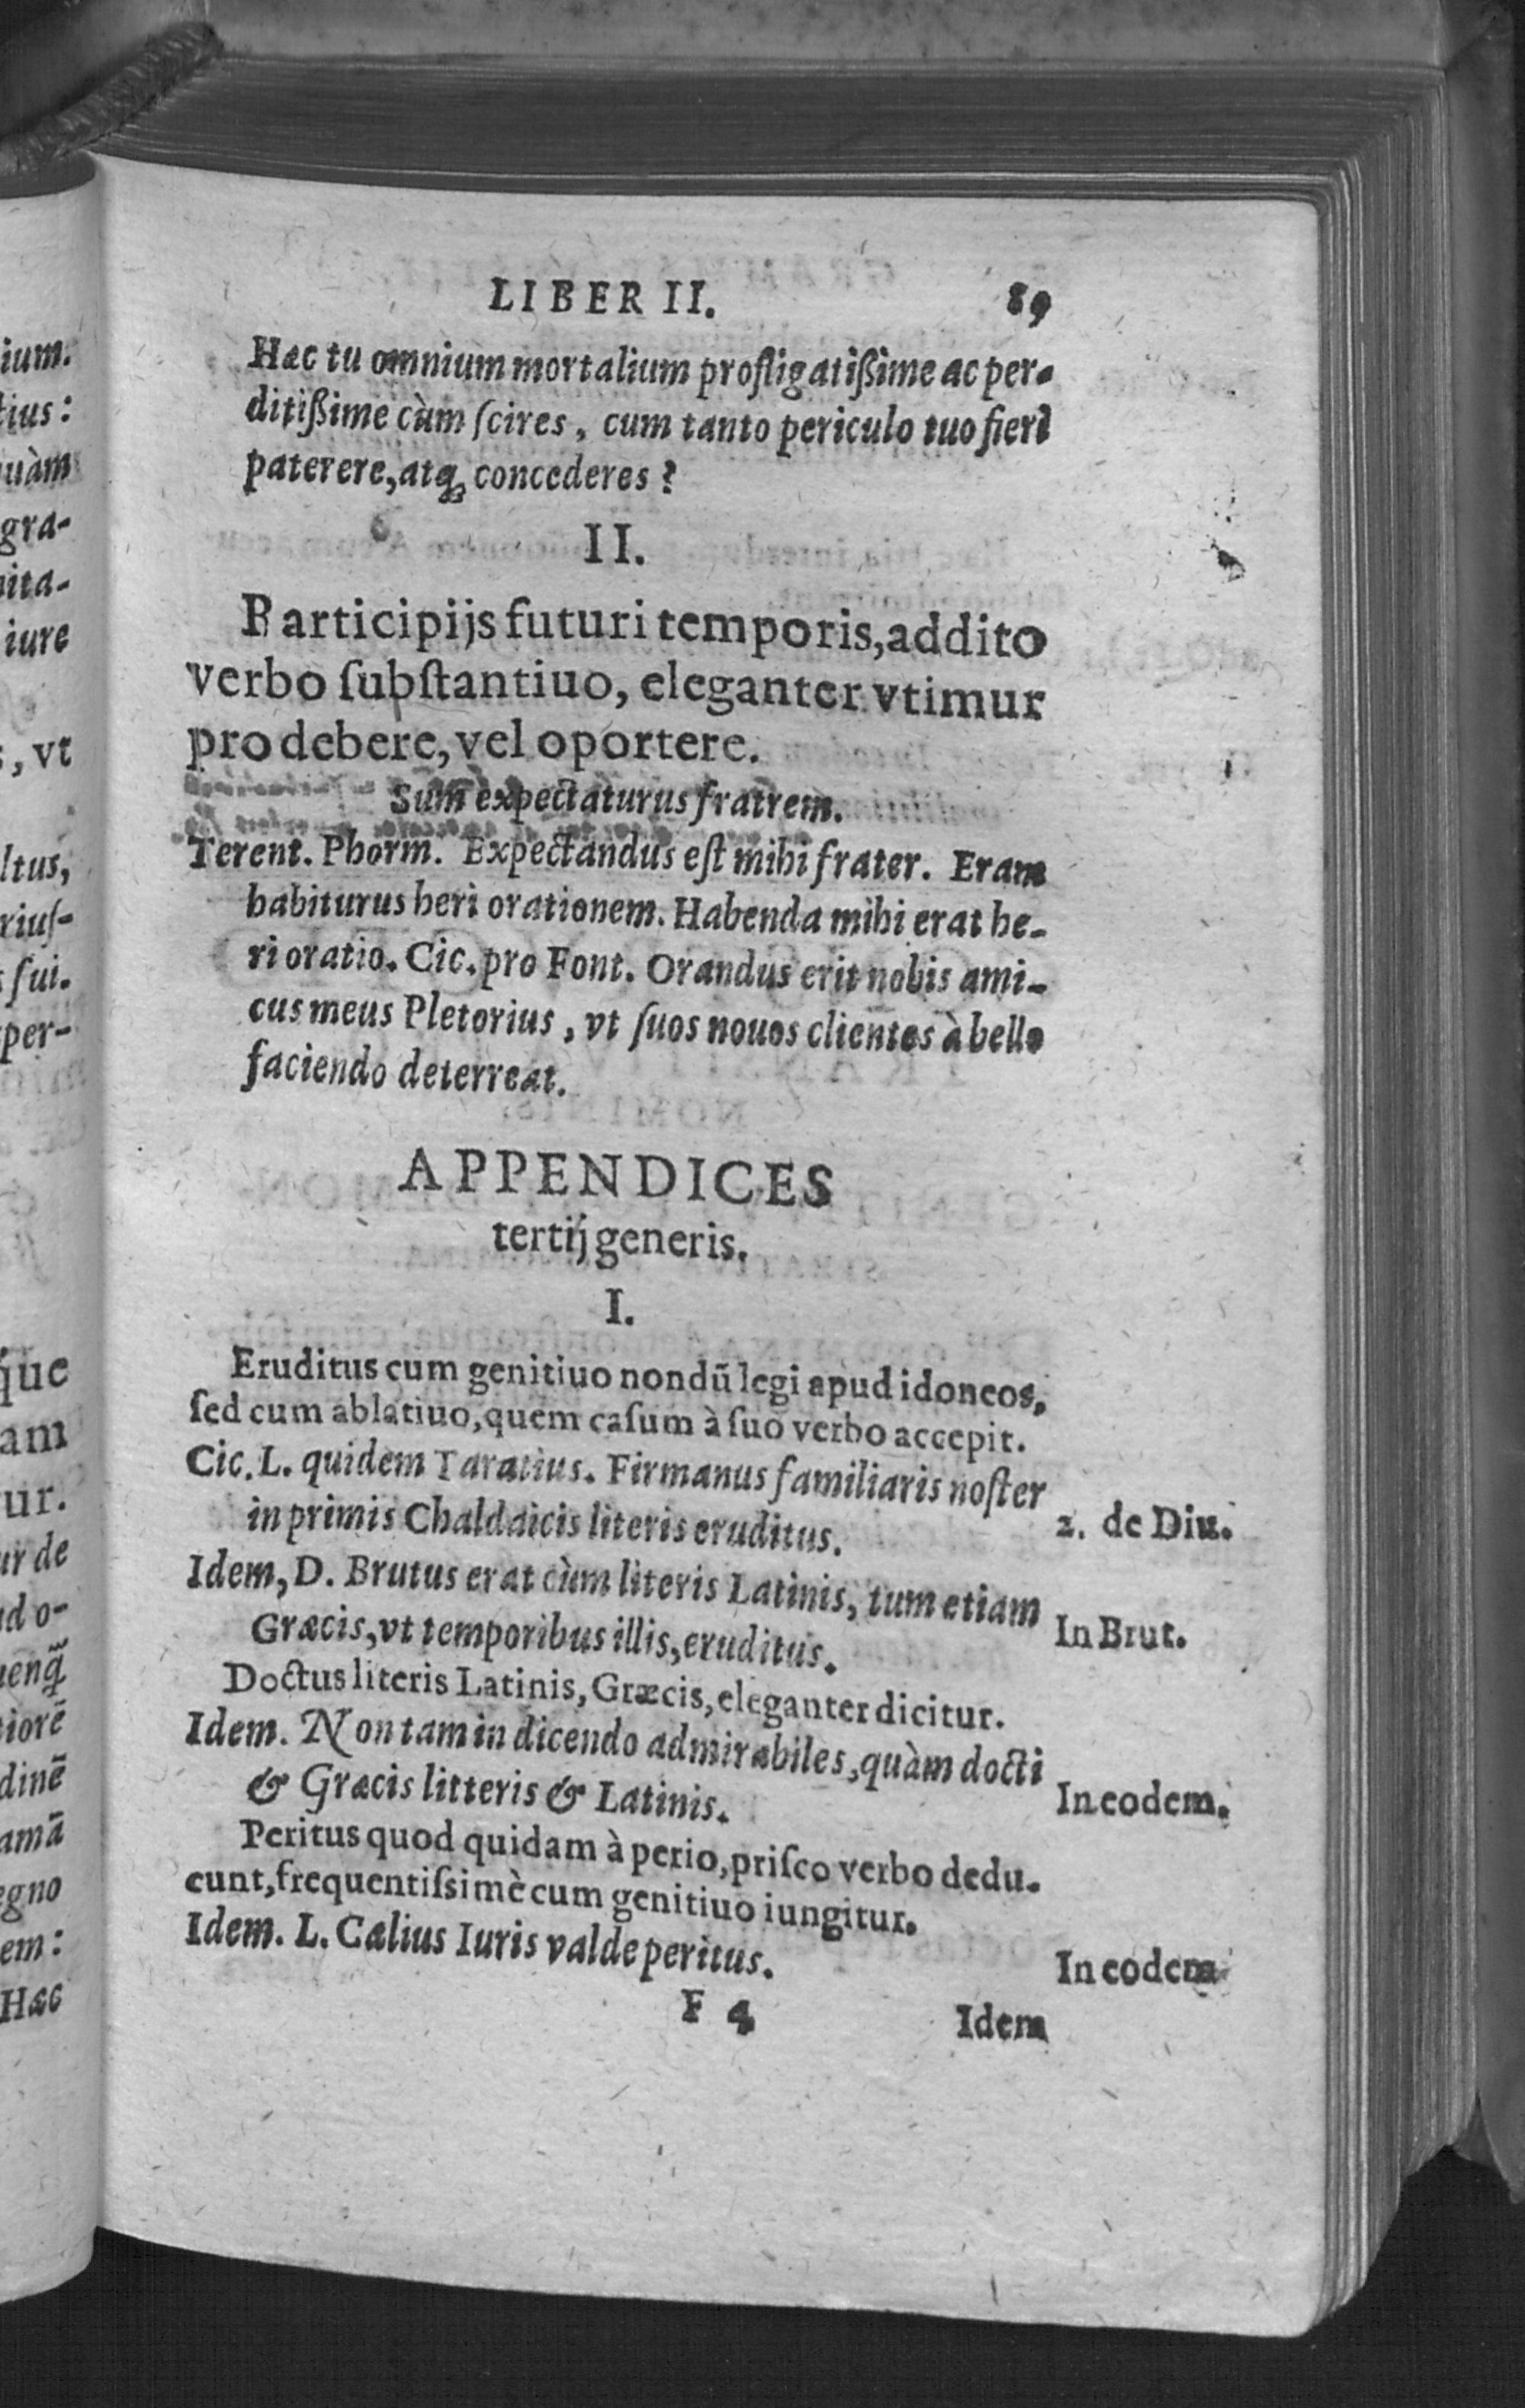 LIBER II. 89
Hæc tu omnium mortalium profligatißime ac per-
ditißime cùm ſcires, cum tanto periculo tuo fieri
paterere, atq; concederes?
II.
Participijs futuri temporis, addito
verbo ſubſtantiuo, eleganter vtimur
pro debere, vel oportere.
Sum expectaturus fratrem.
Terent. Phorm. Expectandus eſt mihi frater. Eram
habiturus heri orationem. Habenda mihi erat he-
ri oratio. Cic. pro Font. Orandus erit nobis ami-
cus meus Pletorius, vt ſuos nouos clientes à bello
faciendo deterreat.
APPENDICES
tertij generis.
I.
Eruditus cum genitiuo nondū legi apud idoneos,
ſed cum ablatiuo, quem caſum à ſuo verbo accepit.
Cic. L. quidem Taratius. Firmanus familiaris noſter
in primis Chaldaicis literis eruditus. 2. de Diu.
Idem, D. Brutus erat cùm literis Latinis, tum etiam
Græcis, vt temporibus illis, eruditus. In Brut.
Doctus literis Latinis, Græcis, eleganter dicitur.
Idem. Non tam in dicendo admirabiles, quàm docti
& Græcis litteris & Latinis. In eodem.
Peritus quod quidam à perio, priſco verbo dedu-
cunt, frequentiſsimè cum genitiuo iungitur.
Idem. L. Cælius Iuris valde peritus. In eodem
F 4 Idem
ium.
tius:
uàm
gra-
ita-
iure
, vt
ltus,
riuſ-
ſui.
per-
que
am
ur.
ur de
ad o-
uenq̃
iorē
dinē
amā
egno
em:
Hæc